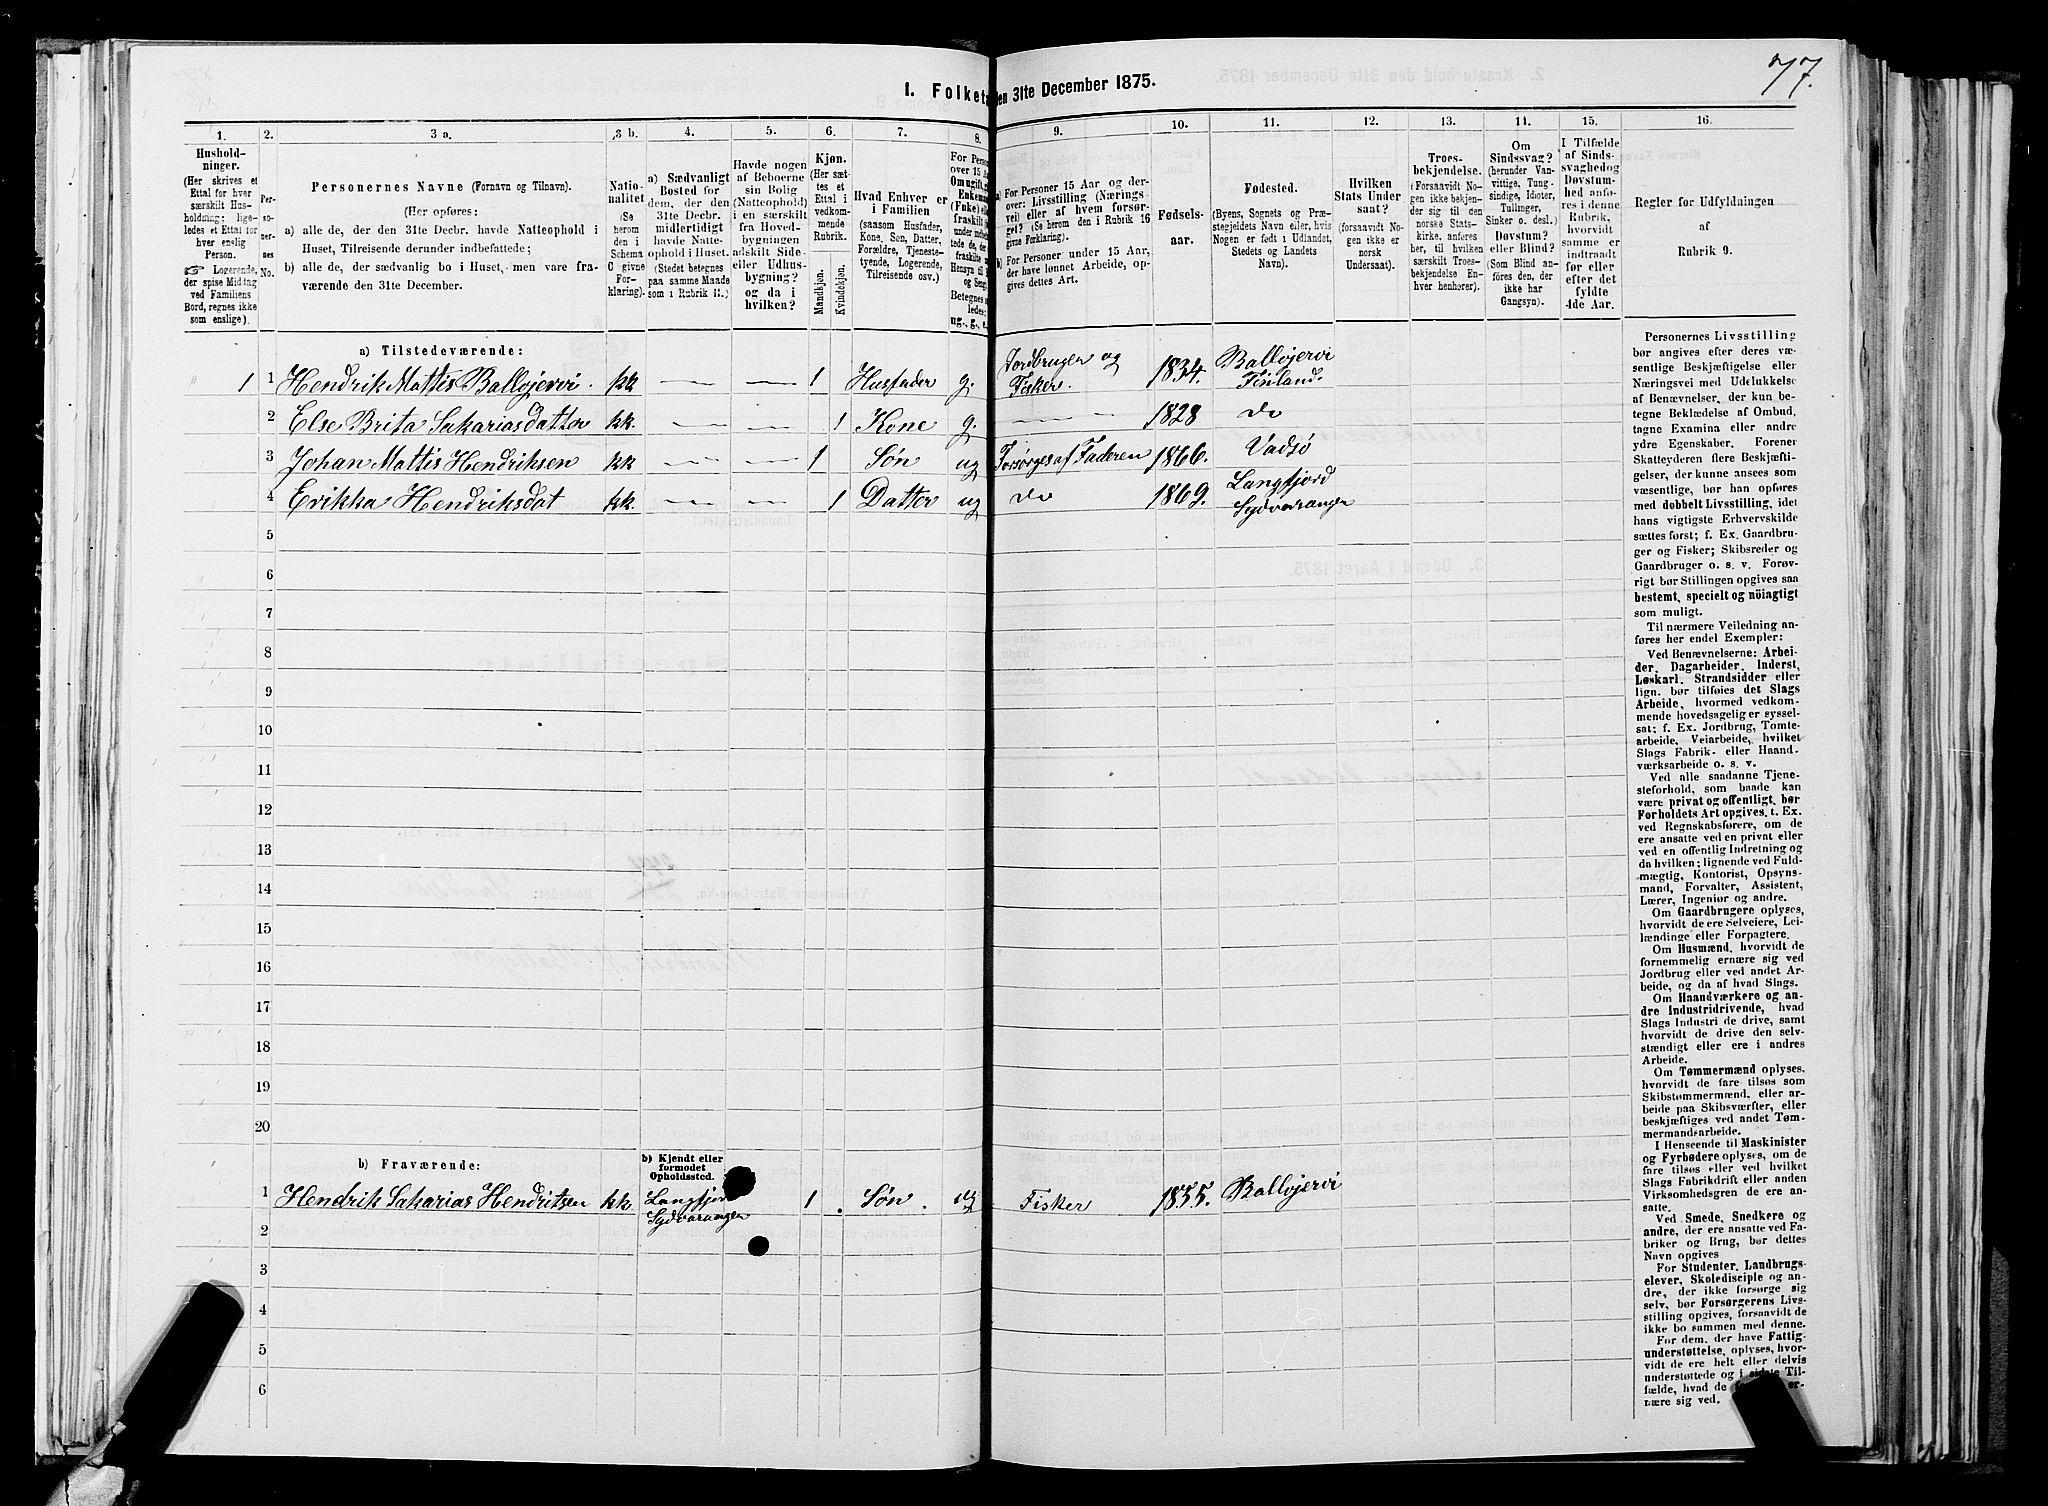 77.
I. Folket
en 31te December 1875.
1. 2. 3 a. 3 b. 4. 5. 6. 7. 8. 9. 10. 11. 12. 13. 14. 15. 16.
Hushold-
ninger.
(Her skrives et
Ettal for hver
særskilt Hus-
holdning; lige-
ledes et Ettal for
hver enslig
Person.
☞ Logerende,
der spise Middag
ved Familiens
Bord, regnes ikke
som enslige).
Per-
so-
ner-
nes
No.
Personernes Navne (Fornavn og Tilnavn).
(Her opføres:
a) alle de, der den 31te Decbr. havde Natteophold i
Huset, Tilreisende derunder indbefattede;
b) alle de, der sædvanlig bo i Huset, men vare fra-
værende den 31te December.
Natio-
nalitet
(Se
herom
den i
Schema
C givne
For-
klaring).
a) Sædvanligt
Bosted for
dem, der den
31te Decbr.
midlertidigt
havde Natte-
ophold i Huset.
(Stedet betegnes
paa samme Maade
som i Rubrik 11.)
Havde nogen
af Beboerne
sin Bolig
(Natteophold)
i en særskilt
fra Hoved-
bygningen
adskilt Side-
eller Udhus-
bygning?
og da i
hvilken?
Kjøn.
(Her sæt-
tes et
Ettal i
vedkom-
mende
Rubrik.
Mandkjøn.
Kvindekjøn.
Hvad Enhver er
i Familien
(saasom Husfader,
Kone, Søn, Datter,
Forældre, Tjeneste-
tyende, Logerende,
Tilreisende osv.)
For Person
over 15 Aa
Om ugift, gi
Enkeman
(Fuke) ell
fraskilt
under indb
tede de,
fraskilte
Hensyn til
og Seng.
Betegnes
ledes:
ug., g., e.
a) For Personer 15 Aar og der-
over: Livsstilling (Nærings-
vei) eller af hvem forsør-
get (Se herom den i Rubrik 16
givne Forklaring).
b) For Personer under 15 Aar,
der have lønnet Arbeide, op-
gives dettes Art.
Fødsels-
aar.
Fødested.
(Byens, Sognets og Præ-
stegjeldets Navn eller, hvis
Nogen er født i Udlandet,
Stedets og Landets
Navn).
Hvilken
Stats Under
saat?
(forsaavidt No-
gen ikke er
norsk
Undersaat).
Troes-
bekjendelse.
(Forsaavidt No-
gen ikke bekjen-
der sig til den
norske Stats-
kirke, anføres
her, til hvilken
særskilt Troes-
bekjendelse En-
hver henhører).
Om
Sindssvag?
(herunder Van-
vittige, Tung-
sindige, Idioter,
Tullinger,
Sinker o. desl.)
Døvstum?
eller Blind?
(Som Blind an-
føres den, der
ikke har
Gangsyn).
I Tilfælde
af Sinds-
svaghed og
Døvstum-
hed anfø-
res i denne
Rubrik,
hvorvidt
samme er
indtraadt
før eller
efter det
fyldte
4de Aar.
Regler for Udfyldningen
af
Rubrik 9.
a) Tilstedeværende:
1 1 Hendrik Mattis Balløjervi. kk — — 1 Husfader g. Jordbruger og Fisker. 1834. Balløjervi Finland.
2 Else Brita Sakariasdatter kk. — — 1 Kone g. — — 1828 do
3 Johan Mattis Hendriksen kk — — 1 Søn ug Forsørges af Faderen 1866. Vadsø
4 Erikka Hendriksdat kk. — — 1 Datter ug do 1869. Langfjord Sydvaranger
5
6
7
8
9
10
11
12
13
14
15
16
17
18
19
20
b) Fraværende:
b) Kjendt eller
formodet
Opholdssted.
1 Hendrik Sakarias Hendriksen kk Langfjord Sydvaranger 1 Søn ug Fisker 1855. Balløjervi
2
3
4
5
6
Personernes Livsstilling
bør angives efter deres væ-
sentlige Beskjæftigelse eller
Næringsvei med Udelukkelse
af Benævnelser, der kun be-
tegne Beklædelse af Ombud,
tagne Examina eller andre
ydre Egenskaber. Forener
Skatteyderen flere Beskjæfti-
gelser, der kunne ansees som
væsentlige, bør han opføres
med dobbelt Livsstilling, idet
hans vigtigste Erhvervskilde
sættes først; f. Ex. Gaardbru-
ger og Fisker; Skibsreder og
Gaardbruger o. s. v. Forøv-
rigt bør Stillingen opgives saa
bestemt, specielt og nöiagtigt
som muligt.
Til nærmere Veiledning an-
føres her endel Exempler:
Ved Benævnelserne: Arbei-
der, Dagarbeider, Inderst,
Løskarl, Strandsidder eller
lign. bør tilføies det Slags
Arbeide, hvormed vedkom-
mende hovedsagelig er syssel-
sat; f. Ex. Jordbrug, Tomte-
arbeide, Veiarbeide, hvilket
Slags Fabrik- eller Haand-
værksarbeide o. s. v.
Ved alle saadanne Tjene-
steforhold, som baade kan
være privat og offentligt, bør
Forholdets Art opgives, t. Ex.
ved Regnskabsførere, om de
ere ansatte ved en privat eller
ved en offentlig Indretning og
da hvilken; lignende ved Fuld-
mægtig, Kontorist, Opsyns-
mand, Forvalter, Assistent,
Lærer, Ingeniør og andre.
Om Gaardbrugere oplyses,
hvorvidt de ere Selveiere, Lei-
lændinge eller Forpagtere.
Om Husmænd, hvorvidt de
fornemmelig ernære sig ved
Jordbrug eller ved andet Ar-
beide, og da af hvad Slags.
Om Haandværkere og an-
dre Industridrivende, hvad
Slags Industri de drive, samt
hvorvidt de drive den selv-
stændigt eller ere i andres
Arbeide.
Om Tømmermænd oplyses,
hvorvidt de fare tilsøs som
Skibstømmermænd, eller ar-
beide paa Skibsværfter, eller
beskjæftiges ved andet Tøm-
mermandsarbeide.
I Henseende til Maskinister
og Fyrbødere oplyses, om de
fare tilsøs eller ved hvilket
Slags Fabrikdrift eller anden
Virksomhedsgren de ere an-
satte.
Ved Smede, Snedkere og
andre, der ere ansatte ved Fa-
briker og Brug, bør dettes
Navn opgives
For Studenter, Landbrugs-
elever, Skoledisciple og an-
dre, der ikke forsørge sig
selv, bør Forsørgerens Livs-
stilling opgives, forsaavidt de
ikke bo sammen med denne.
For dem, der have Fattig-
understøttelse, oplyses, hvor-
vidt de ere helt eller delvis
understøttede og i sidste Til-
fælde, hvad de er-
nære sig ved.